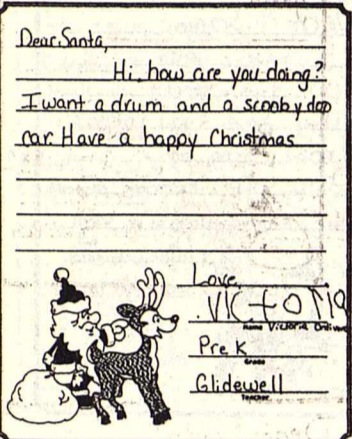 Dear Santa,
Hi, how are you doing?
I want a drum and a scooby doo
car. Have a happy Christmas
Love,
VICTORIA
Name Victoria
Pre K
Grade
Glidewell
Teacher